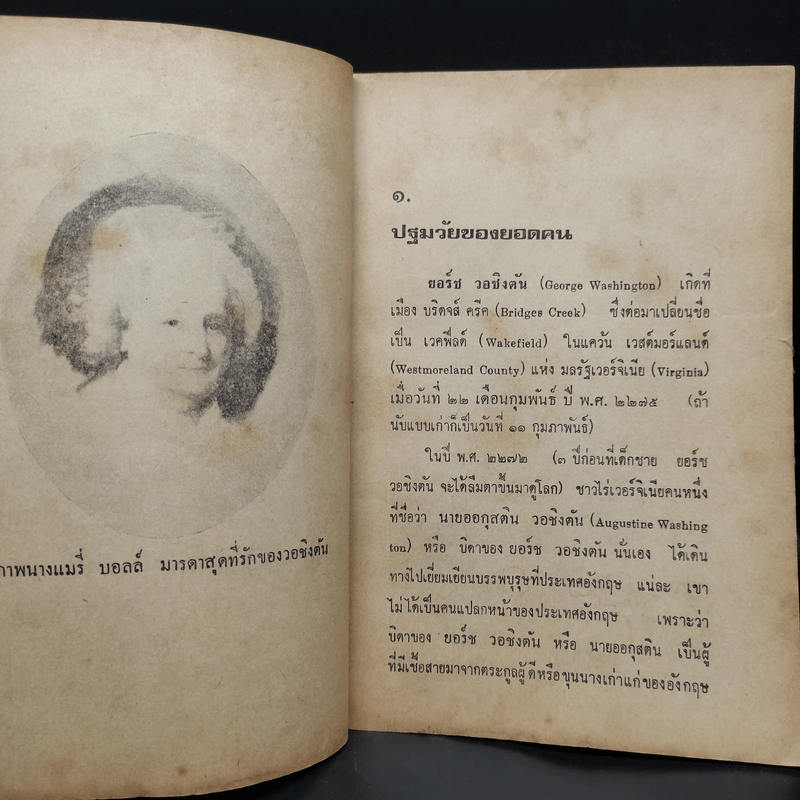 ภาพนางแมรี่ บอลล์ มารดาสุดที่รักของวอชิงตัน
๑.
ปฐมวัยของยอดคน
ยอร์ช วอชิงตัน (George Washington) เกิดที่
เมือง บริดจส์ ครีค (Bridges Creek) ซึ่งต่อมาเปลี่ยนชื่อ
เป็น เวคฟีลด์ (Wakefield) ในแคว้น เวสต์มอร์แลนด์
(Westmoreland County) แห่ง มลรัฐเวอร์จิเนีย (Virginia)
เมื่อวันที่ ๒๒ เดือนกุมพันธ์ ปี พ.ศ. ๒๒๗๕ (ถ้า
นับแบบเก่าก็เป็นวันที่ ๑๑ กุมภาพันธ์)
ในปี พ.ศ. ๒๒๗๒ (๓ ปีก่อนที่เด็กชาย ยอร์ช
วอชิงตัน จะได้ลืมตาขึ้นมาดูโลก) ชาวไร่เวอร์จิเนียคนหนึ่ง
ที่ชื่อว่า นายออกุสติน วอชิงตัน (Augustine Washing
ton) หรือ บิดาของ ยอร์ช วอชิงตัน นั่นเอง ได้เดิน
ทางไปเยี่ยมเยียนบรรพบุรุษที่ประเทศอังกฤษ แน่ละ เขา
ไม่ได้เป็นคนแปลกหน้าของประเทศอังกฤษ เพราะว่า
บิดาของ ยอร์ช วอชิงตัน หรือ นายออกุสติน เป็นผู้
ที่มีเชื้อสายมาจากตระกูลผู้ดีหรือขุนนางเก่าแก่ของอังกฤษ